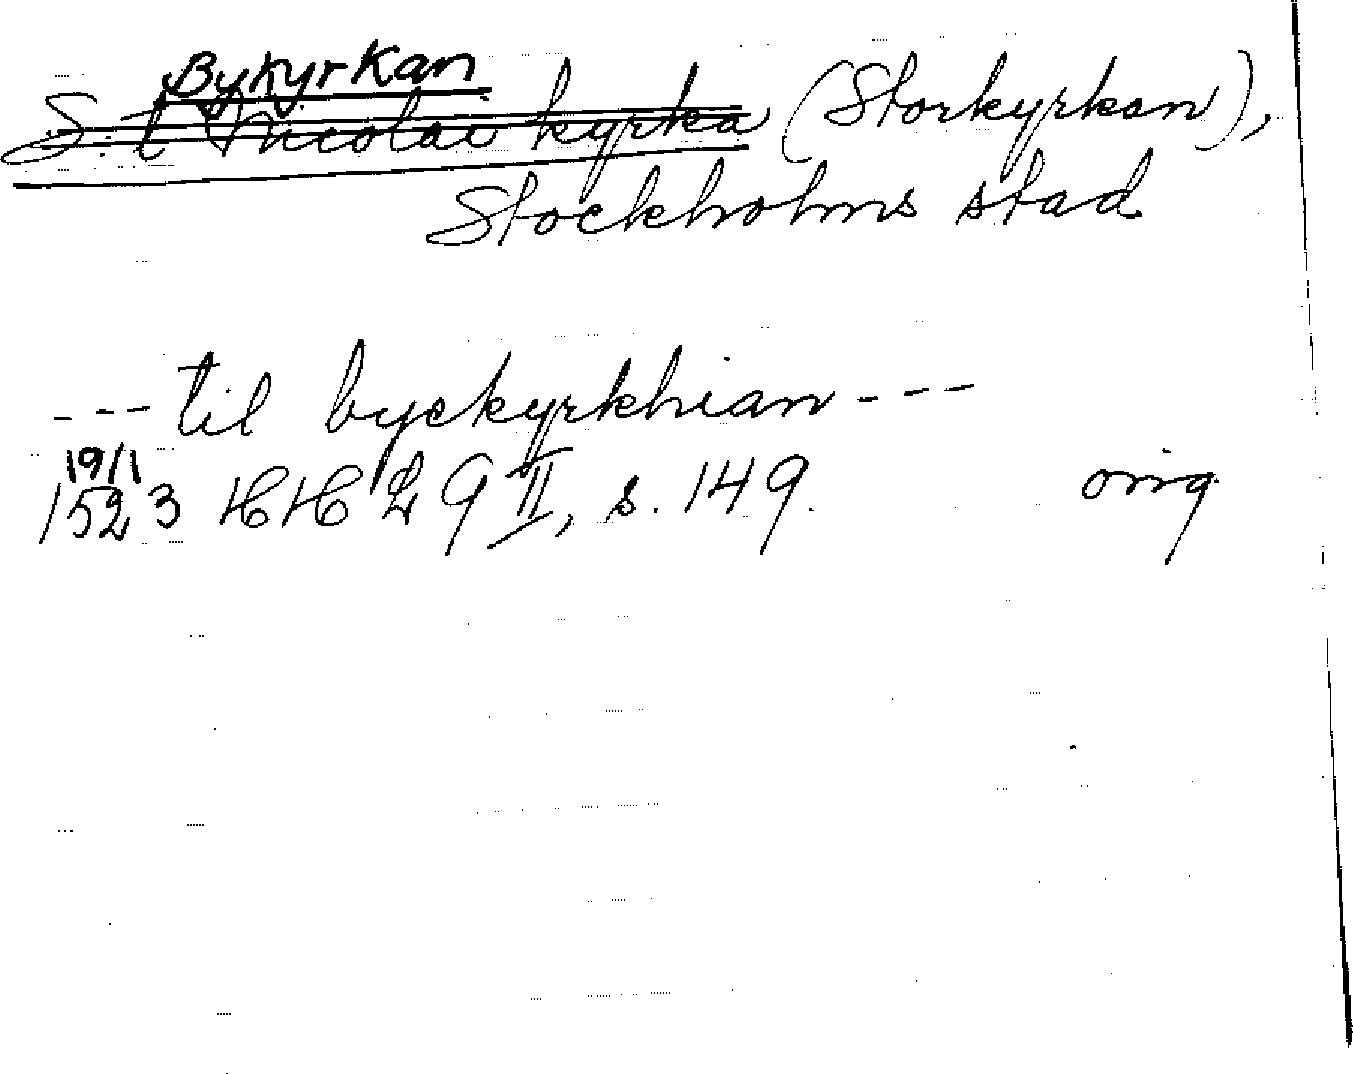 Bykyrkan
S:t Nicolai kyrka (Storkyrkan),
Stockholms stad
--- til byckyrkhian ---
19/1
1523 HH 29 II, s. 149. orig